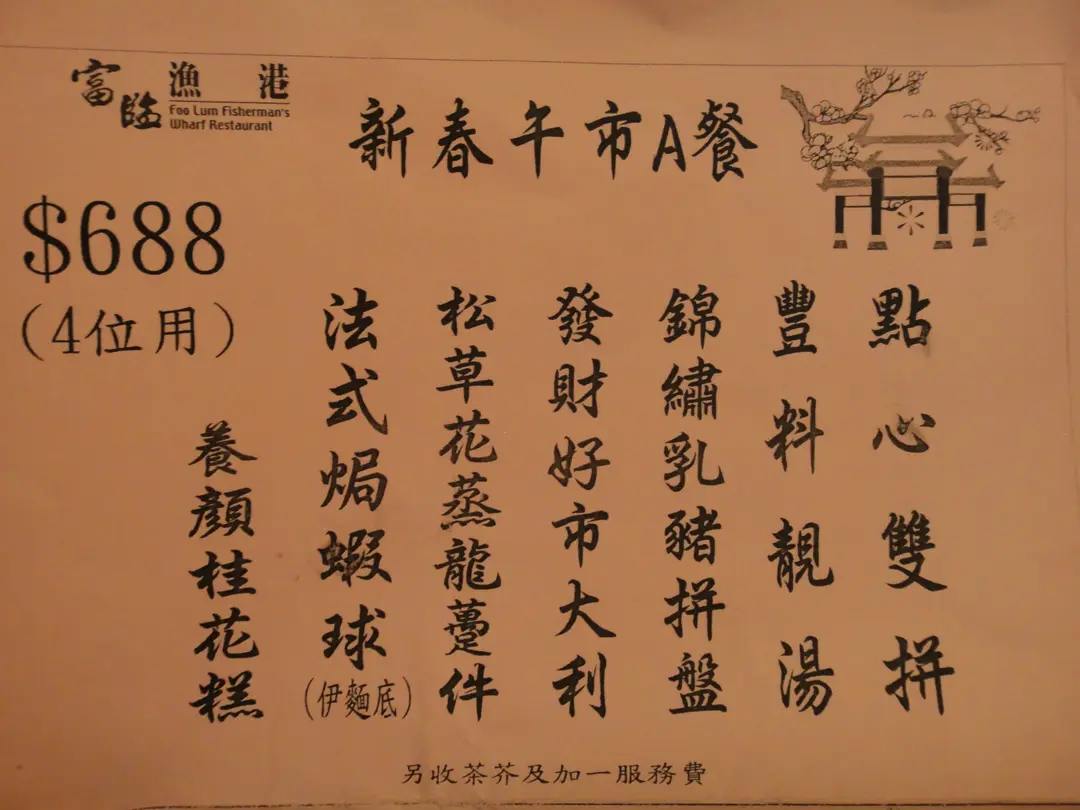 富臨漁港
Foo Lum Fisherman's
Wharf Restaurant
新春午市A餐
$688
(4位用)
點心雙拼
豐料靚湯
錦繡乳豬拼盤
發財好市大利
松草花蒸龍躉件
法式焗蝦球(伊麵底)
養顏桂花糕
另收茶芥及加一服務費